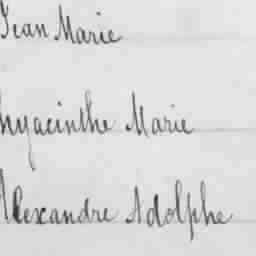 Jean Marie
hyacinthe Marie
Alexandre Adolphe